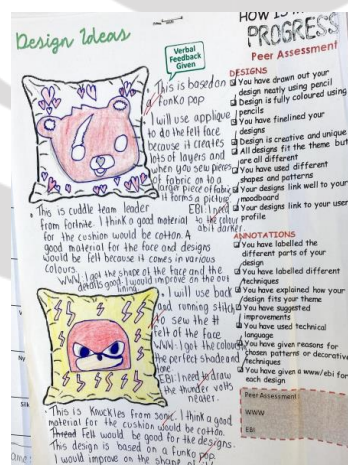 Design Ideas
Verbal
Feedback
Given
This is based on
a funko pop
I will use applique
to do the felt face
because it creates
lots of layers and
when you sew pieces
of fabric on to a
larger piece of fabric
it forms a picture
EBI: I need to the colour
a bit darker.
This is cuddle team leader
from fortnite. I think a good material
for the cushion would be cotton. A
good material for the face and designs
would be felt because it comes in various
colours.
WWW: I got the shape of the face and the
details good. I would improve on the out
lining
I will use back
and running stitch
to sew the
felt of the face
WWW: I got the colours
the perfect shade and
tone.
EBI: I need to draw
the thunder volts
neater.
This is Knuckles from sonic. I think a good
material for the cushion would be cotton.
Thread Felt would be good for the designs.
This design is based on a funko pop.
I would improve on the shape of
PROGRESS
Peer Assessment
DESIGNS
You have drawn out your
design neatly using pencil
Design is fully coloured using
pencils
You have finelined your
designs
Design is creative and unique
All designs fit the theme but
are all different
You have used different
shapes and patterns
Your designs link well to your
moodboard
Your designs link to your user
profile
ANNOTATIONS
You have labelled the
different parts of your
design
You have labelled different
techniques
You have explained how your
design fits your theme
You have suggested
improvements
You have used technical
language
You have given reasons for
chosen patterns or decorative
techniques
You have given a www/ebi for
each design
Peer Assessment
WWW
EBI